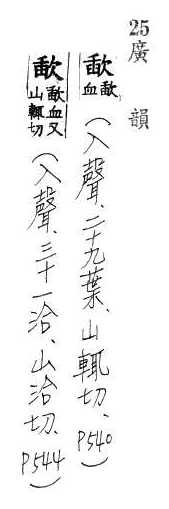 25廣韻
歃歃血(入聲、二十九葉、山輒切、P540)
歃歃血又山輒切(入聲、三十一洽、山洽切、P544)